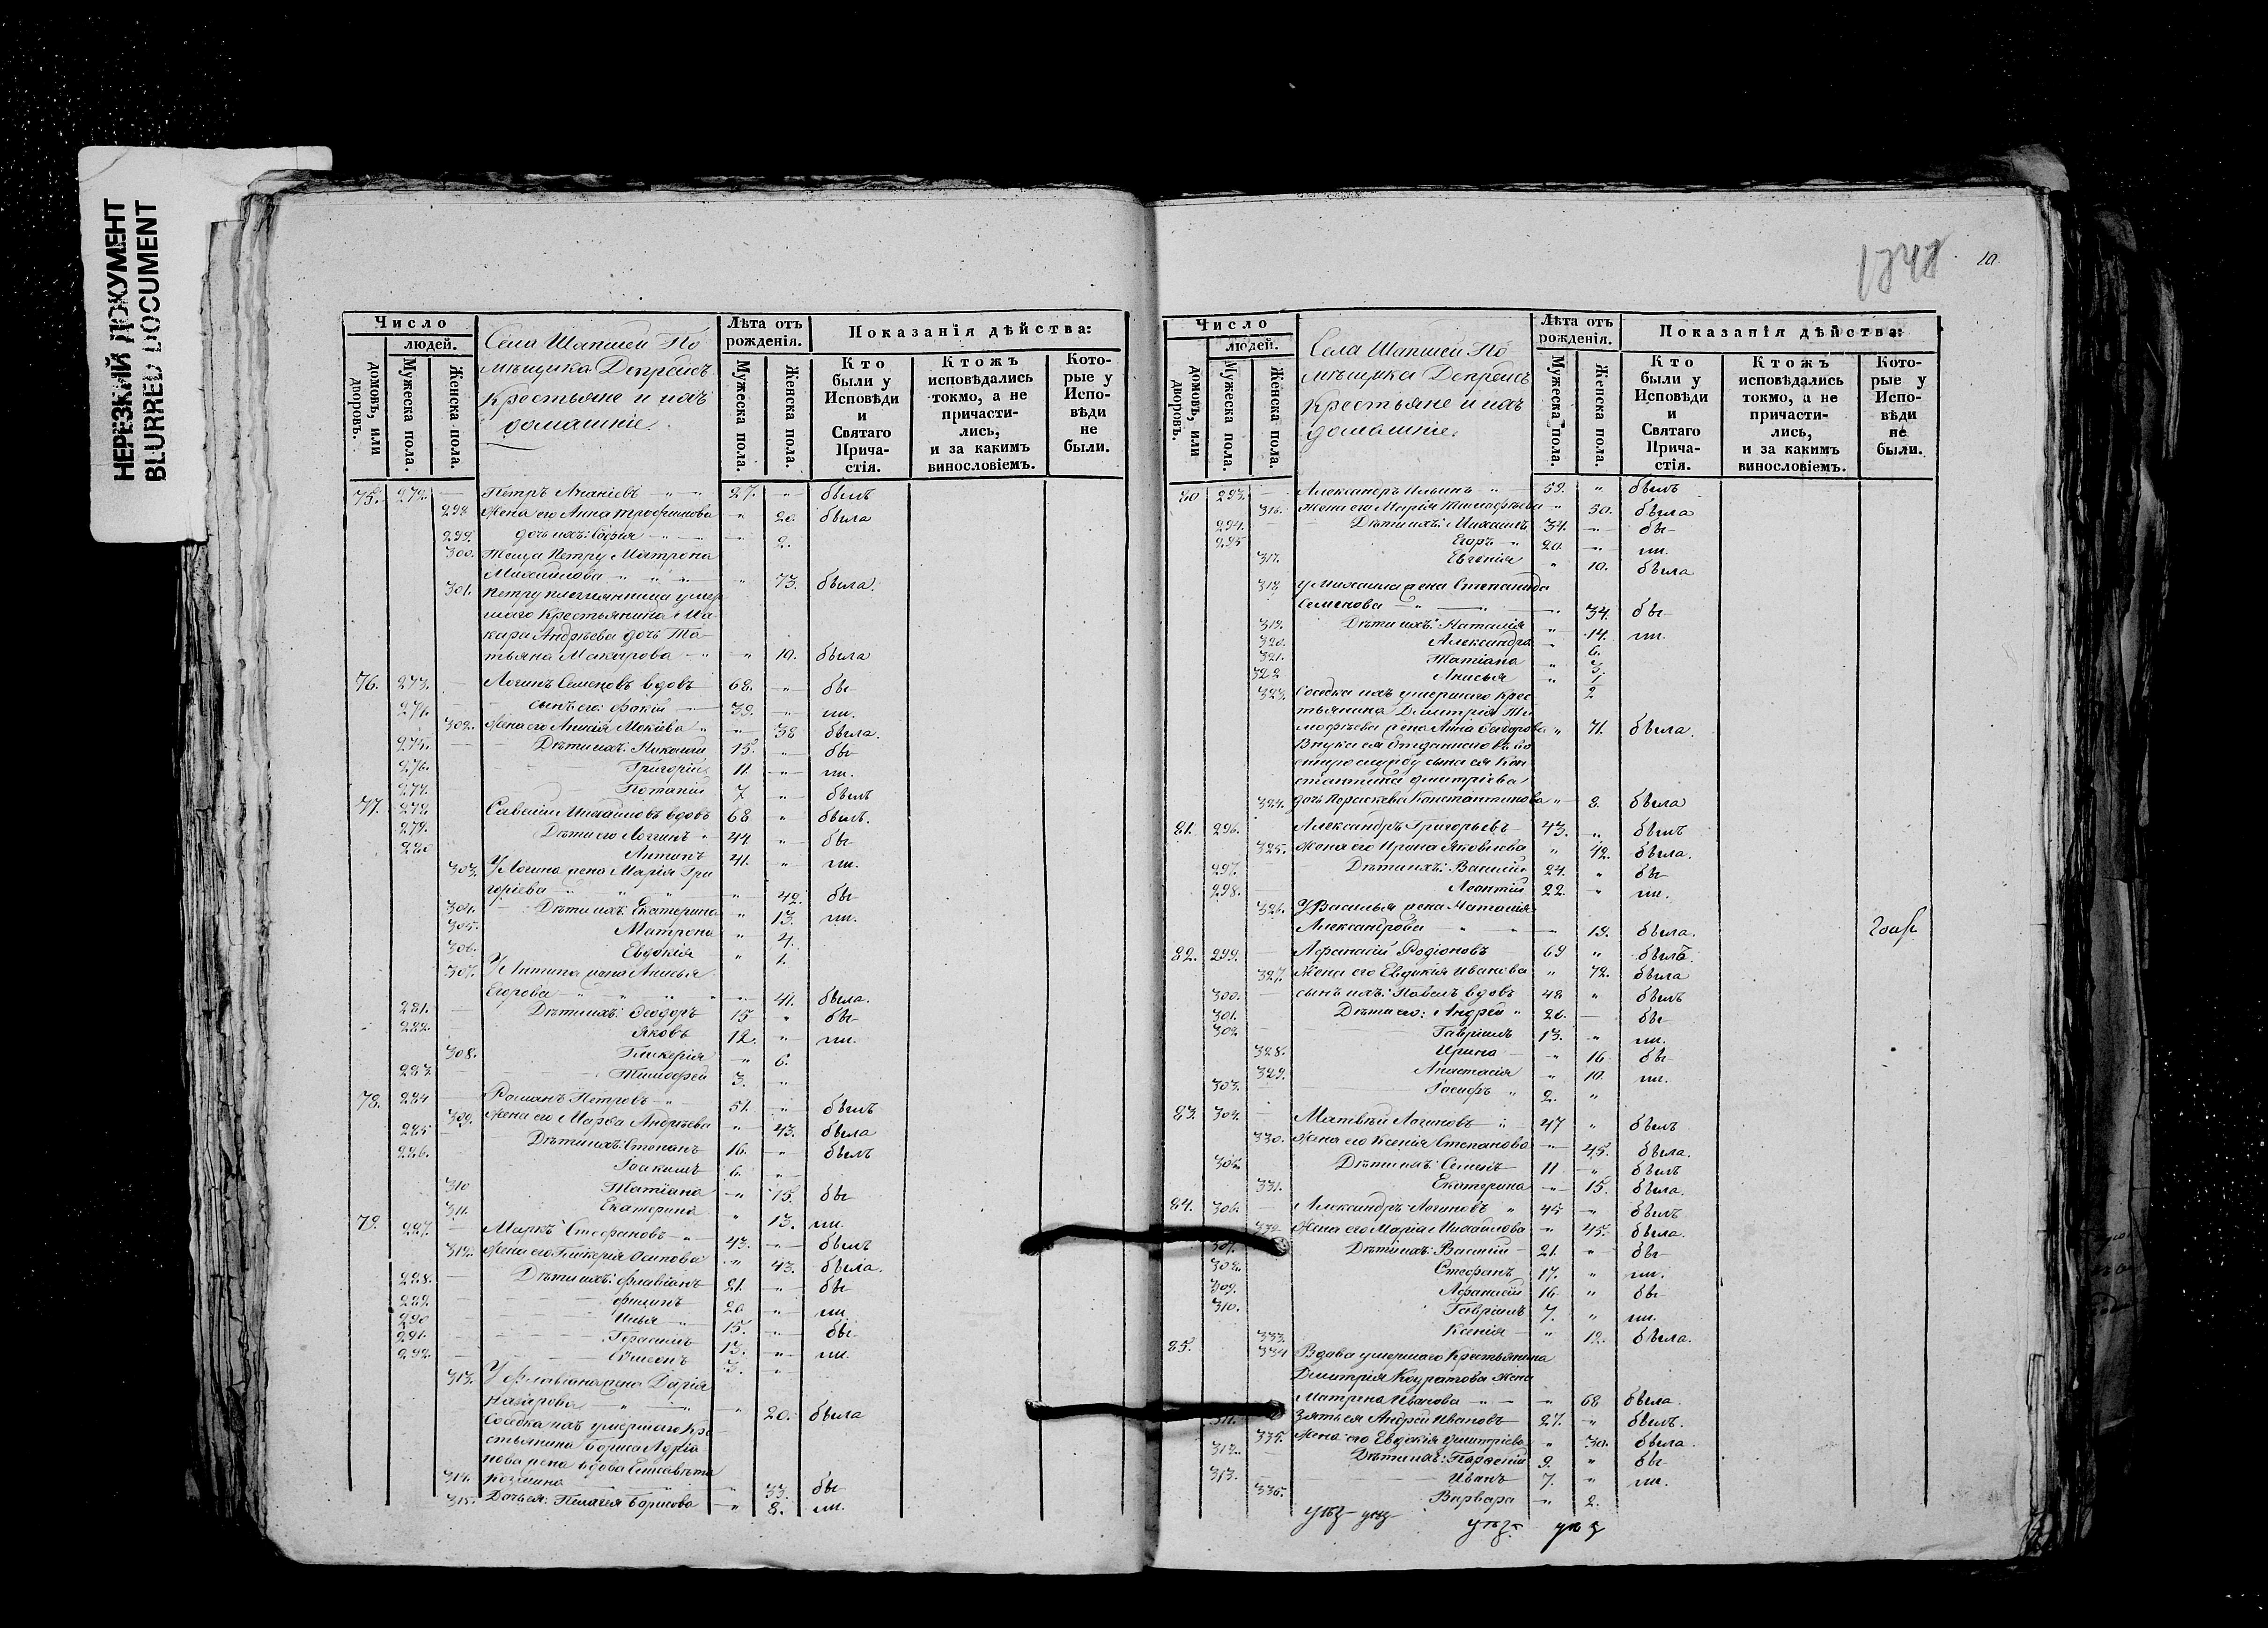 НЕРЕЗКИЙ ДОКУМЕНТ
BLURRED DOCUMENT
Число
людей.
домовъ, или дворовъ.
Мужеска пола.
Женска пола.
Села Шапшей По
мѣщика Депрейсъ
Крестьяне и ихъ
домашніе.
Лѣта отъ рожденія.
Мужеска пола.
Женска пола.
Показанія дѣйства:
Кто были у Исповѣди и Святаго Прича-стія.
Ктожъ исповѣдались токмо, а не причасти-лись, и за какимъ винословіемъ.
Кото-рые у Испо-вѣди не были.
75. 272. — Петръ Ананіевъ 27. былъ
298 Жена его Анна Трофимова 20. была
299. дочь ихъ: Софія 2.
300. Теща Петру Матрона
Михайлова 73. была.
301. Петру племянница умер
шаго Крестьянина Ма
кара Андрѣева дочь Та
тьяна Макарова 10. была
76. 273. Логинъ Семеновъ вдовъ 68. бы
274. сынъ его: Фокій 39. ли.
302. Жена его Анисія Мокіева 38 была.
275. Дѣти ихъ: Николай 15. бы
276. Григорій 11. ли.
277. Потапій 7 былъ
77. 278. Савелій Михайловъ вдовъ 68 былъ.
279. Дѣти его Логгинъ 44. бы
280 Антипъ 41. ли.
303. У Логина жена Марія Гри
горіева 42. бы
304. Дѣти ихъ: Екатерина 13. ли.
305. Матрона 4.
306. Евдокія 1.
307. У Антипа жена Анисья
Егорова 41. была.
281. Дѣти ихъ: Ѳеодоръ 15 бы
282. Яковъ 12. ли.
308. Гликерія 6.
283. Тимофей 3.
78. 284 Романъ Петровъ 51. былъ
309. Жена его Марѳа Андрѣева 43. была
285 Дѣти ихъ: Степанъ 16. былъ
286. Іоакимъ 6.
310 Татіана 15. бы
311. Екатерина 13. ли.
79. 287. Маркъ Стефановъ 43. былъ
312. Жена его Гликерія Осипова 43. была.
288. Дѣти ихъ: Флавіанъ 21. бы
289. Филипъ 20 ли
290 Илья 15. бы
291. Герасимъ 13. ли.
292. Сѵмеонъ 3.
313. У Флавіана жена Дарія
Назарова 20. была
Сосѣдка ихъ умершаго Кре
стьянина Бориса Адріа
нова жена вдова Елисавета
314. Козмина 33. бы
315. Дочь ея: Пелагея Борисова 8. ли.
1248
10.
Число
людей.
домовъ, или дворовъ.
Мужеска пола.
Женска пола.
Села Шапшей По
мѣщика Депрейсъ
Крестьяне и ихъ
домашніе.
Лѣта отъ рожденія.
Мужеска пола.
Женска пола.
Показанія дѣйства:
Кто были у Исповѣди и Святаго Прича-стія.
Ктожъ исповѣдались токмо, а не причасти-лись, и за какимъ винословіемъ.
Кото-рые у Испо-вѣди не были.
80 293. Александръ Ильинъ 59. былъ
316. Жена его Марія Тимофѣева 50. была
294. Дѣти ихъ: Михаилъ 34. бы
295 Егоръ 20. ли.
317. Евгенія 10. была
318 У Михаила жена Степанида
Семенова 34. бы
319. Дѣти ихъ: Наталія 14. ли.
320. Александра 6.
321. Татіана 3.
322 Анисья 1/2
323. Сосѣдка ихъ умершаго Крес
тьянина Димитрія Ти
мофѣева жена Анна Ѳедорова 71. была.
Внука ея отданнаго въ во
енную службу сына ея Кон
стантина Дмитріева
324. дочь Параскева Константинова 8. была
81. 296. Александръ Григорьевъ 43. былъ
325. Жена его Ирина Яковлева 42. была.
297. Дѣти ихъ: Василій 24. бы
298. Леонтій 22. ли.
326. У Василья жена Наталія
Александрова 19. была.
82. 299. Афанасій Родіоновъ 69 былъ.
327. Жена его Евдокія Иванова 72. была
300. сынъ ихъ: Павелъ вдовъ 48 былъ
301. Дѣти его: Андрей 20. бы
302 Гавріилъ 13. ли.
328. Ирина 16 бы
329. Анастасія 10. ли.
303. Іосифъ 2.
83. 304. Матвѣй Логиновъ 47 былъ
330. Жена его Ксенія Степанова 45. была.
305. Дѣти ихъ: Семенъ 11 былъ
331. Екатерина 15. была.
84. 306. Александръ Логиновъ 45 былъ
332. Жена его Марія Михайлова 45. была.
307. Дѣти ихъ: Василій 21. бы
308. Стефанъ 17. ли.
309. Афанасій 16. бы
310. Гавріилъ 7. ли.
333. Ксенія 12. была.
85. 334 Вдова умершаго Крестьянина
Димитрія Кодратова жена
Матрена Иванова 68 была.
311. Зять ея Андрей Ивановъ 27. былъ.
335. Жена его Евдокія Дмитріева 30. была.
312. Дѣти ихъ: Парѳеній 9. бы
313. Иванъ 7. ли.
336. Варвара 2.